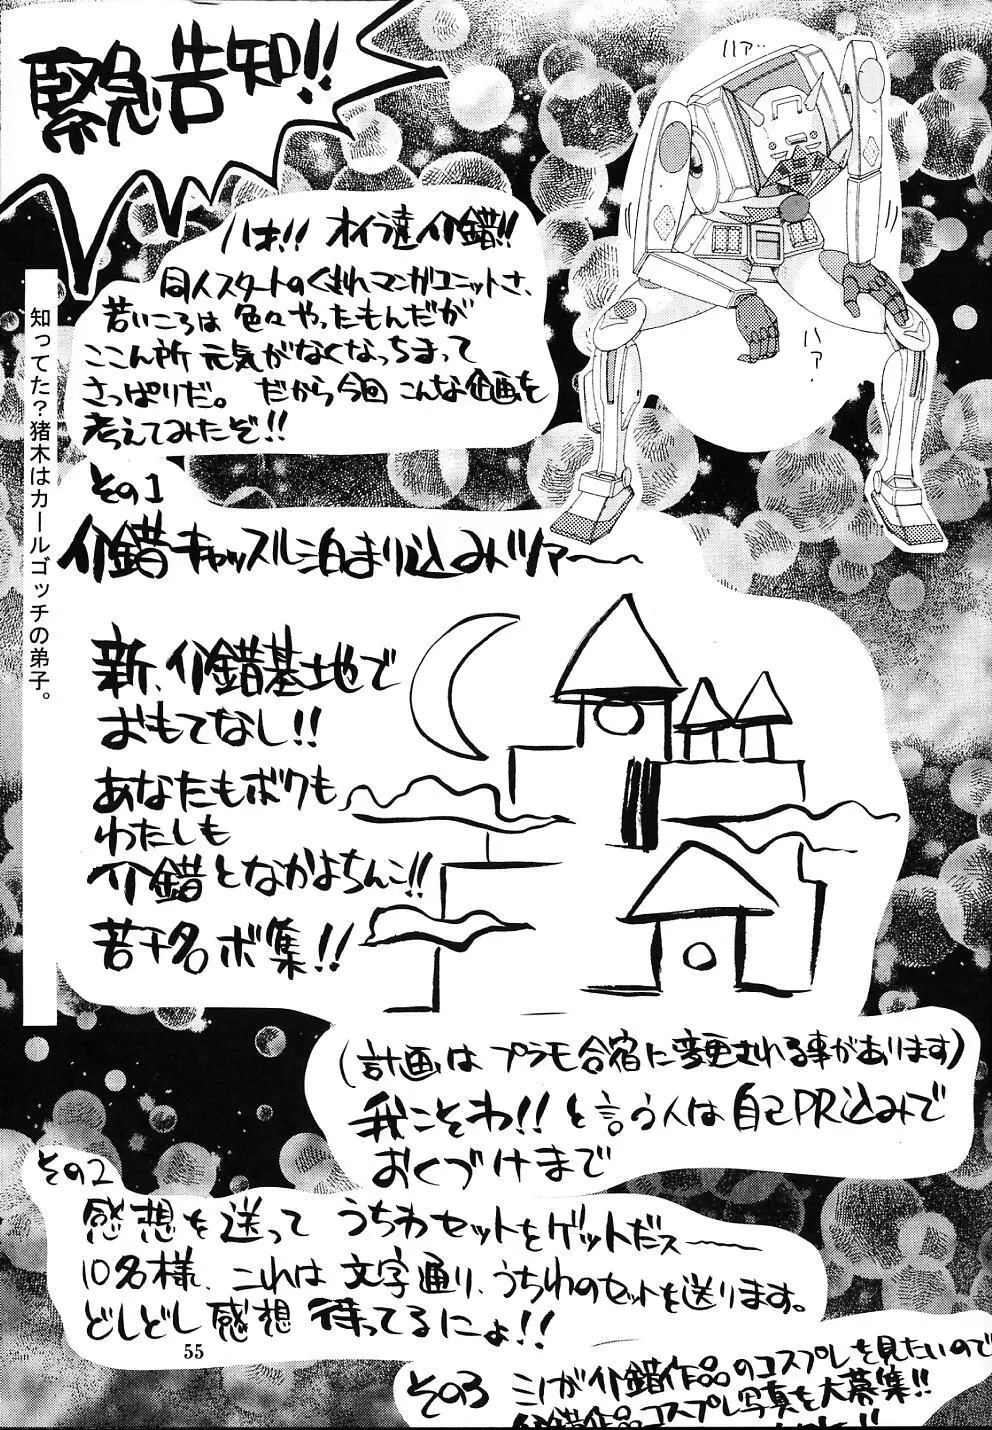 緊急告知!!
ハァ…
ハァ?
ハオ!! オイラ達介錯!!
同人スタートのくされマンガユニットさ、
若いころは 色々やったもんだが
ここん所 元気がなくなっちまって
さっぱりだ。 だから今回 こんな企画を
考えてみたぞ!!
知ってた?猪木はカールゴッチの弟子。
その1
介錯キャッスル泊まり込みツアー〜
新、介錯基地で
おもてなし!!
あなたもボクも
わたしも
介錯となかよちんこ!!
若干名ボ集!!
(計画は プラモ合宿に変更される事があります)
我こそわ!! と言う人は自己PR込みで
おくづけまで
その2
感想を送って うちわセットをゲットだス〜
10名様、これは文字通り、うちわのセットを送ります。
どしどし感想 待ってるにょ!!
55
その3 介錯作品のコスプレを見たいので
介錯作品コスプレ写真を大募集!!